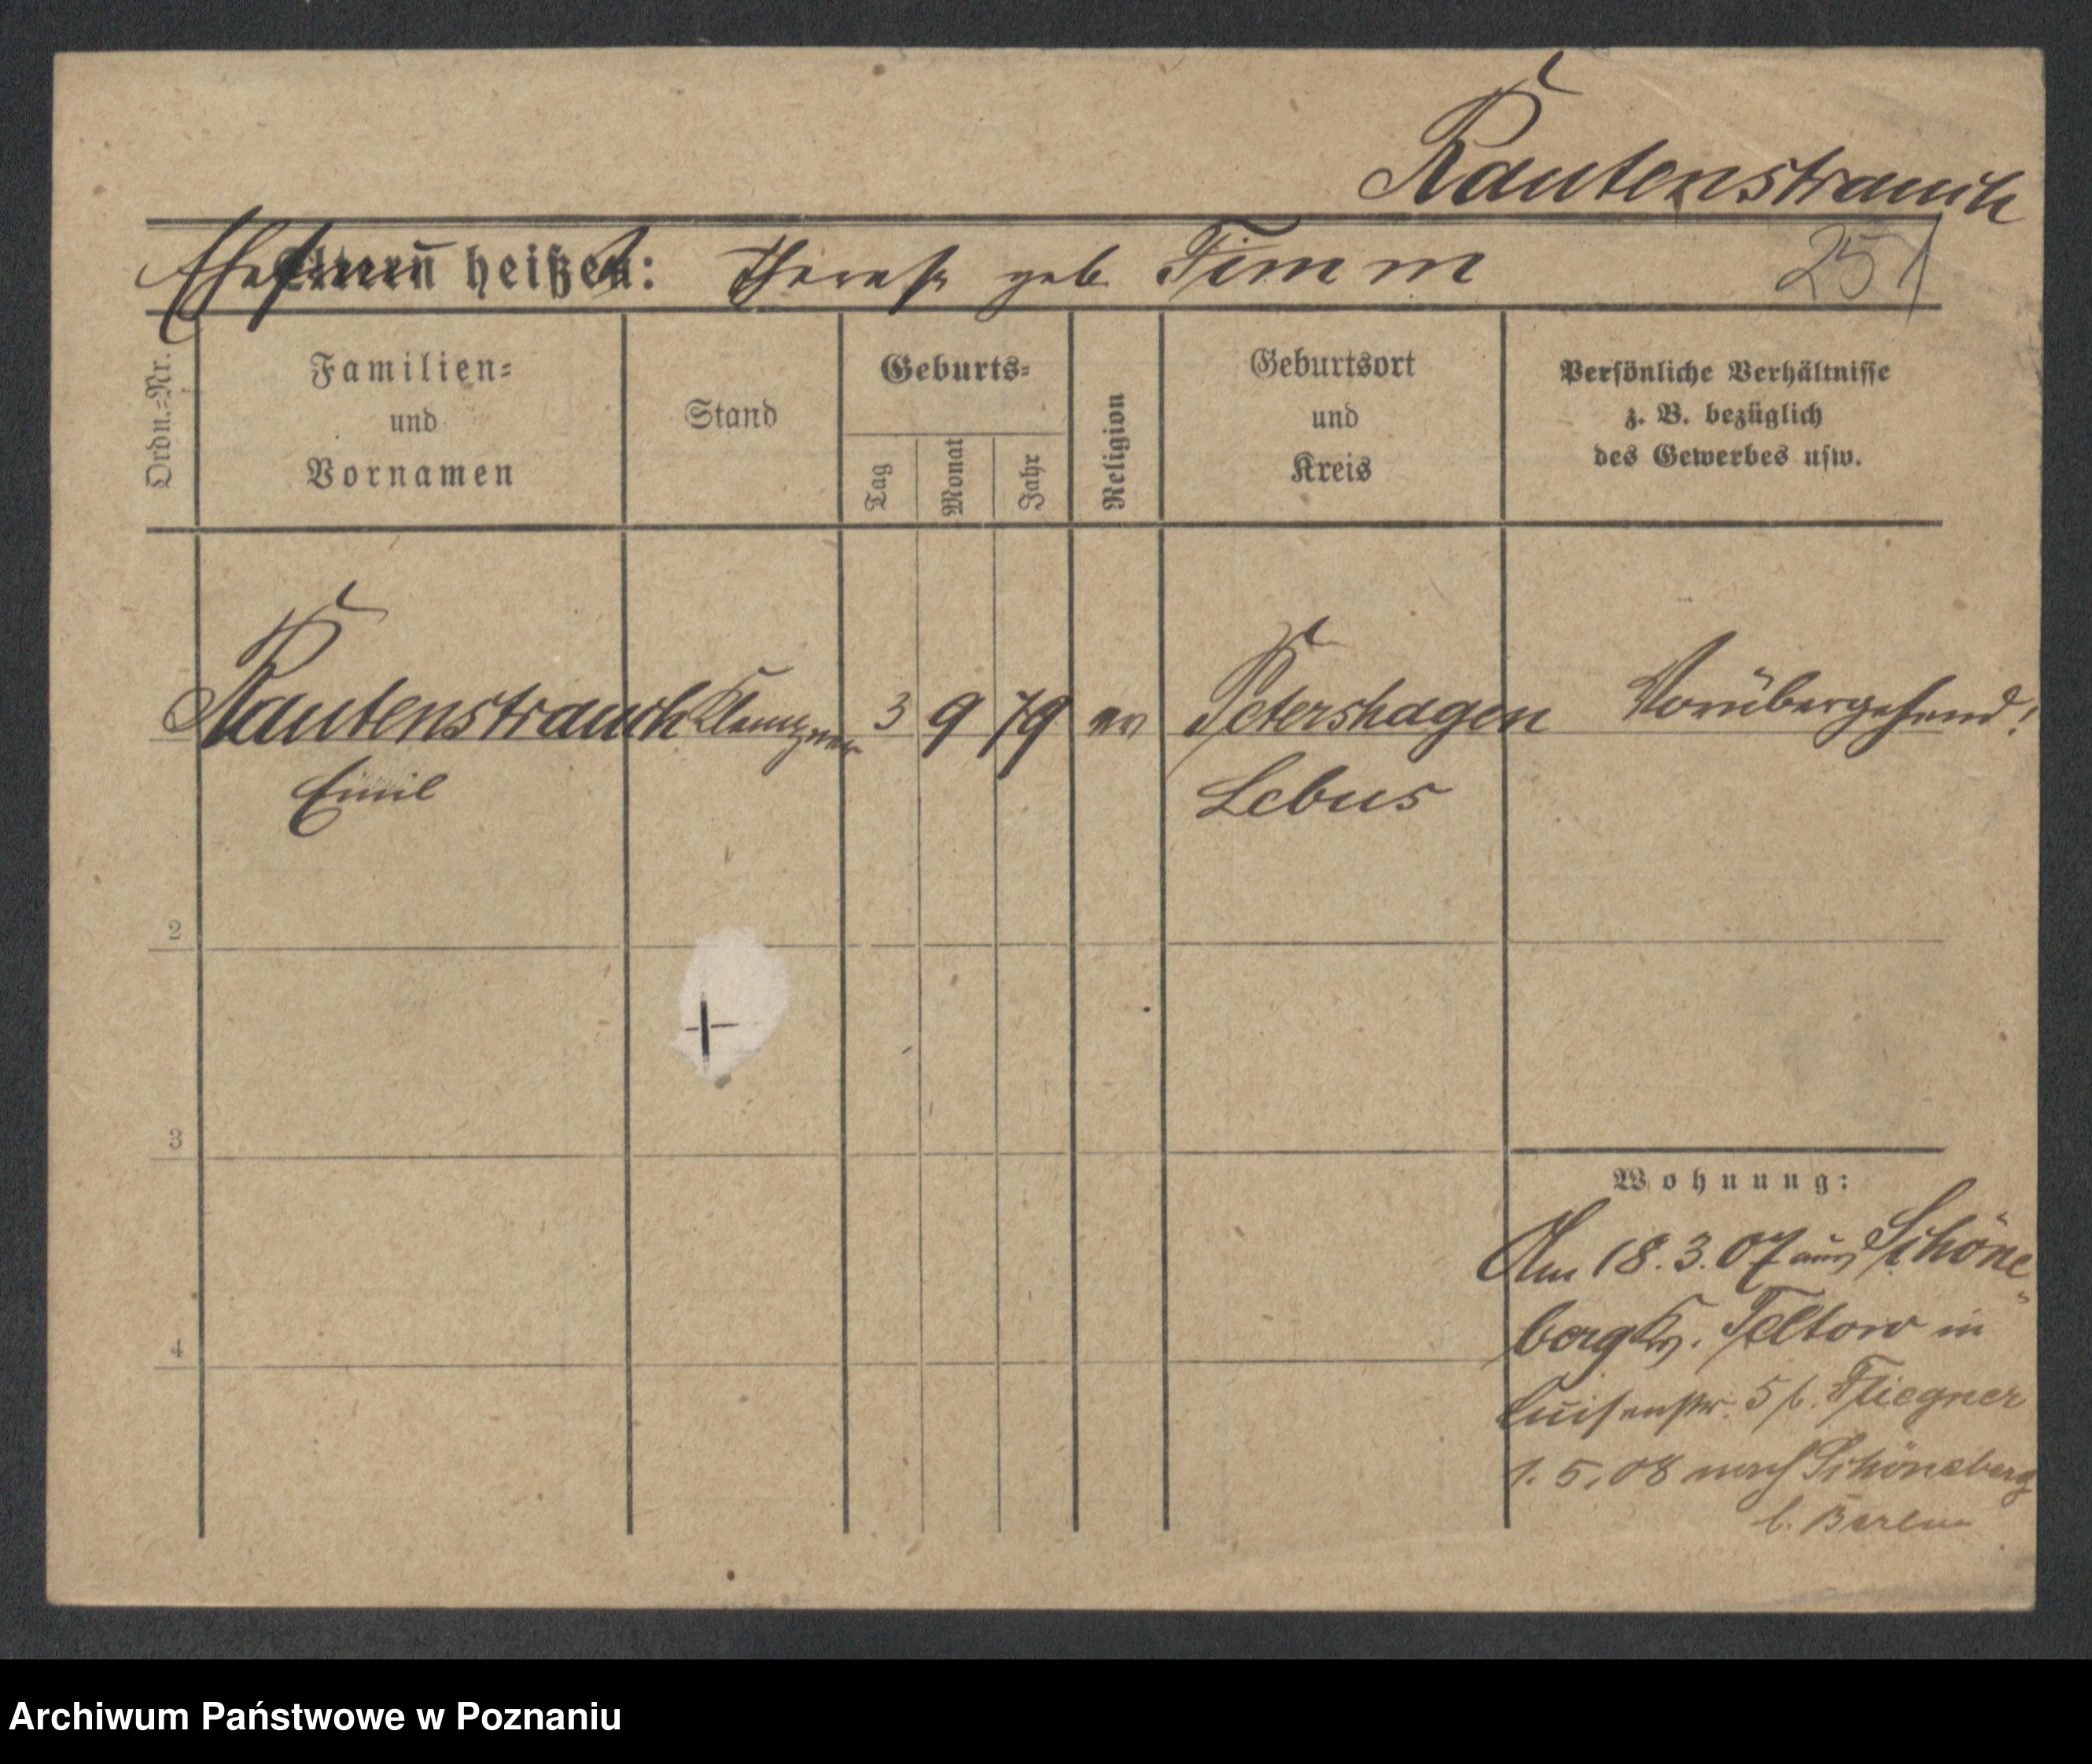 Rautenstrauch
Ehefrau heißt: Therese geb. Timm 251
Ordn.=Nr.
Familien=
und
Vornamen
Stand
Geburts=
Tag
Monat
Jahr
Religion
Geburtsort
und
Kreis
Persönliche Verhältnisse
z. B. bezüglich
des Gewerbes usw.
Rautenstrauch Klempner 3 9 79 ev Petershagen Vorübergehend!
Emil Lebus
2
3
Wohnung:
Am 18.3.07 aus Schöne
berg Kr. Teltow in
4
Luisenstr. 5 b. Fliegner
1.5.08 nach Schöneberg
b. Berlin
Archiwum Państwowe w Poznaniu